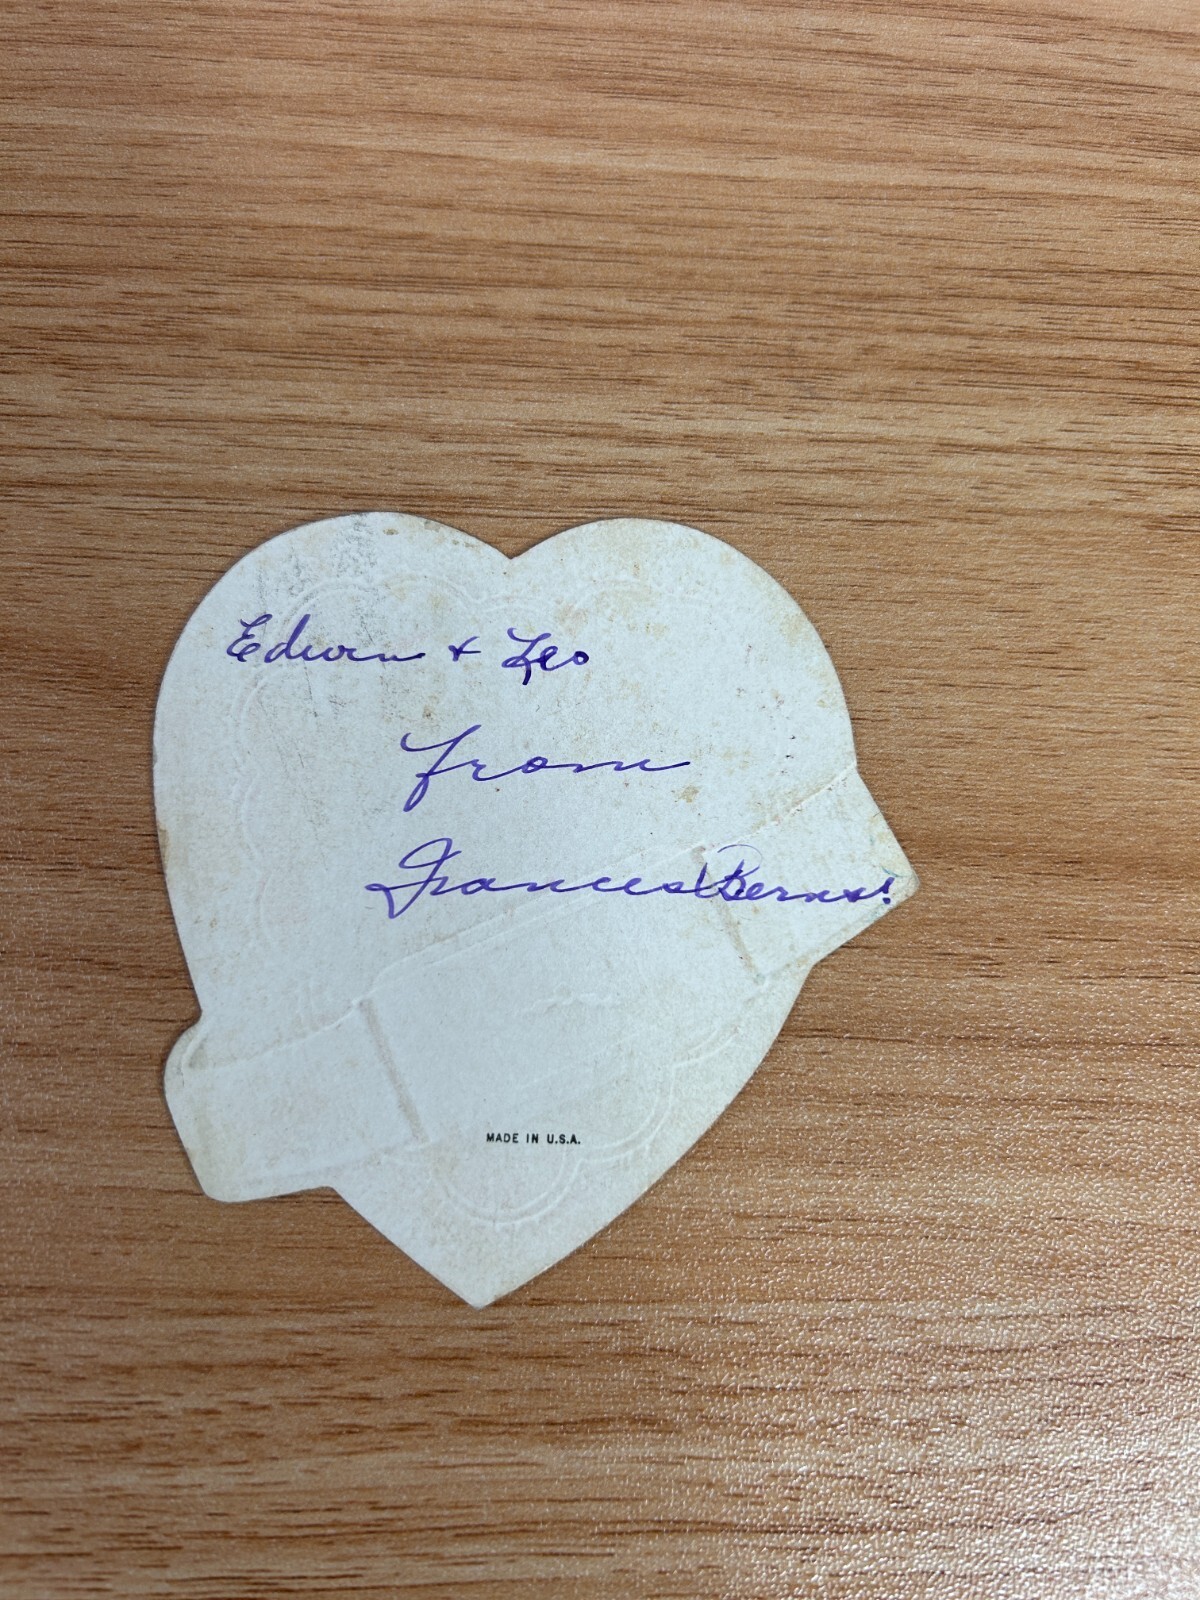 Edwin + Leo
from
Frances
MADE IN U.S.A.